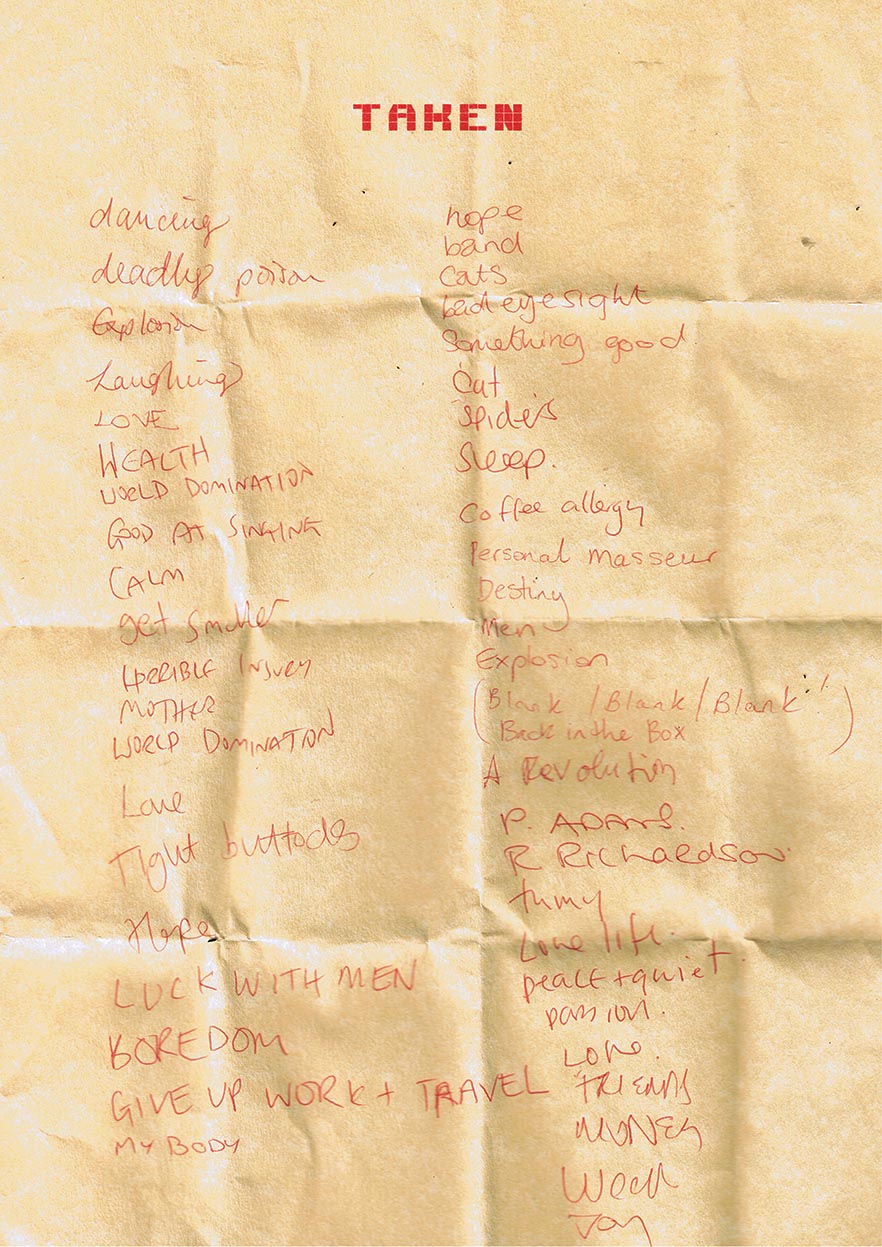 TAKEN
dancing
deadly poison
Explosion
Laughing
LOVE
WEALTH
WORLD DOMINATION
GOOD AT SINGING
CALM
get smaller
HORRIBLE INJURY
MOTHER
WORLD DOMINATION
Love
Tight buttocks
Hope
LUCK WITH MEN
BOREDOM
GIVE UP WORK + TRAVEL
MY BODY
hope
band
cats
bad eyesight
Something good
Cat
Spiders
Sleep.
Coffee allergy
Personal masseur
Destiny
Men
Explosion
(Blank / Blank / Blank!!
Back in the Box)
A Revolution
P. ADAMS.
R Richardson
tummy
Love life.
peace + quiet.
passion.
Love.
FRIENDS
MONEY
Joy